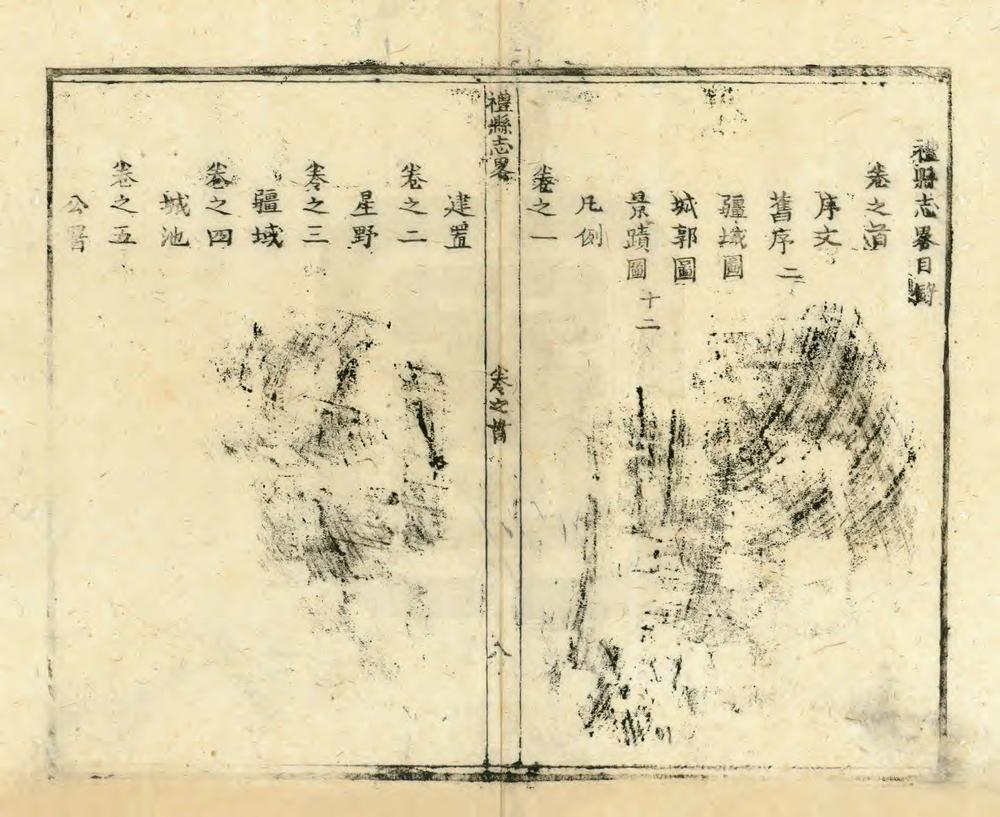 禮縣志畧目錄
卷之首
序文
舊序二
疆域圖
城郭圖
景蹟圖十二
凡例
卷之一
禮縣志畧
卷之首
八
建置
卷之二
星野
卷之三
疆域
卷之四
城池
卷之五
公署